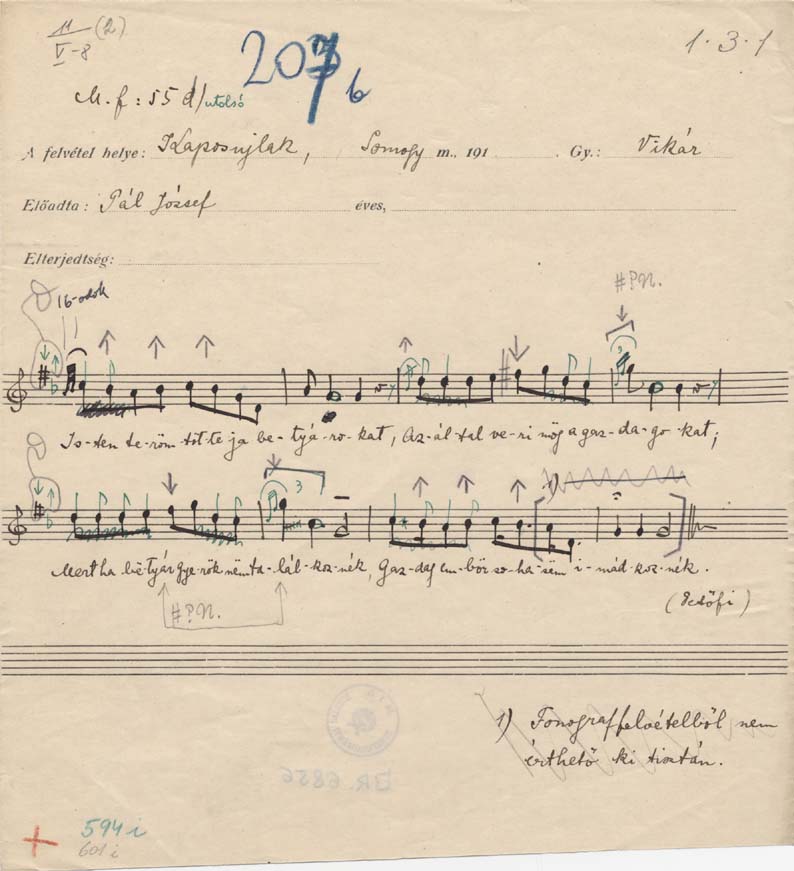 11 (2)
V-8
207 b
1·3·1
M. f: 55 d/utolsó
A felvétel helye: Kaposujlak, Somogy m., 191 . Gy.: Vikár
Előadta: Pál József éves,
Elterjedtség:
16-odok
#?N.
3
Is-ten te-röm-töt-te ja be-tyá-ro-kat, Az-ál-tal ve-ri mög a gaz-da-go-kat;
3
1)
Mert ha be-tyár gye-rök nem ta-lál-koz-nék, Gaz-dag em-bör so-ha-sem i-mád-koz-nék.
#?N.
(Petőfi)
1) Fonograffelvételből nem
érthető ki tisztán.
594 i
601 i